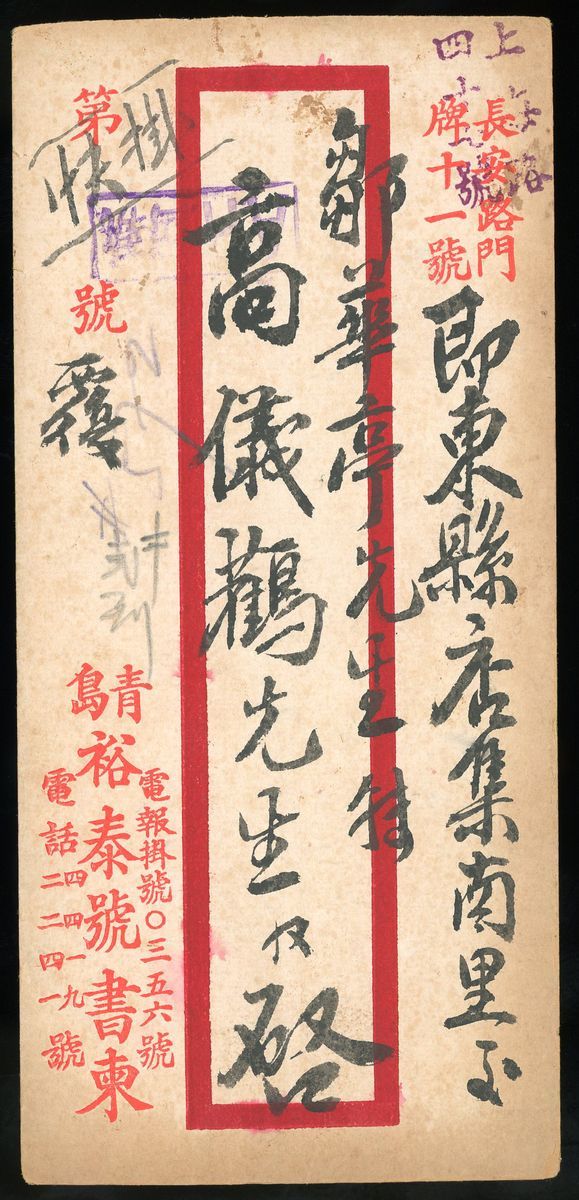 上海路
四十 號
長安路門
牌十一號
即東縣店集南里交
鄒華亭先生轉
高儀鶴先生收啓
掛
快
第 號
覆
青島裕泰號書柬
電報掛號〇三五六號
電話四四一九 二二四一號